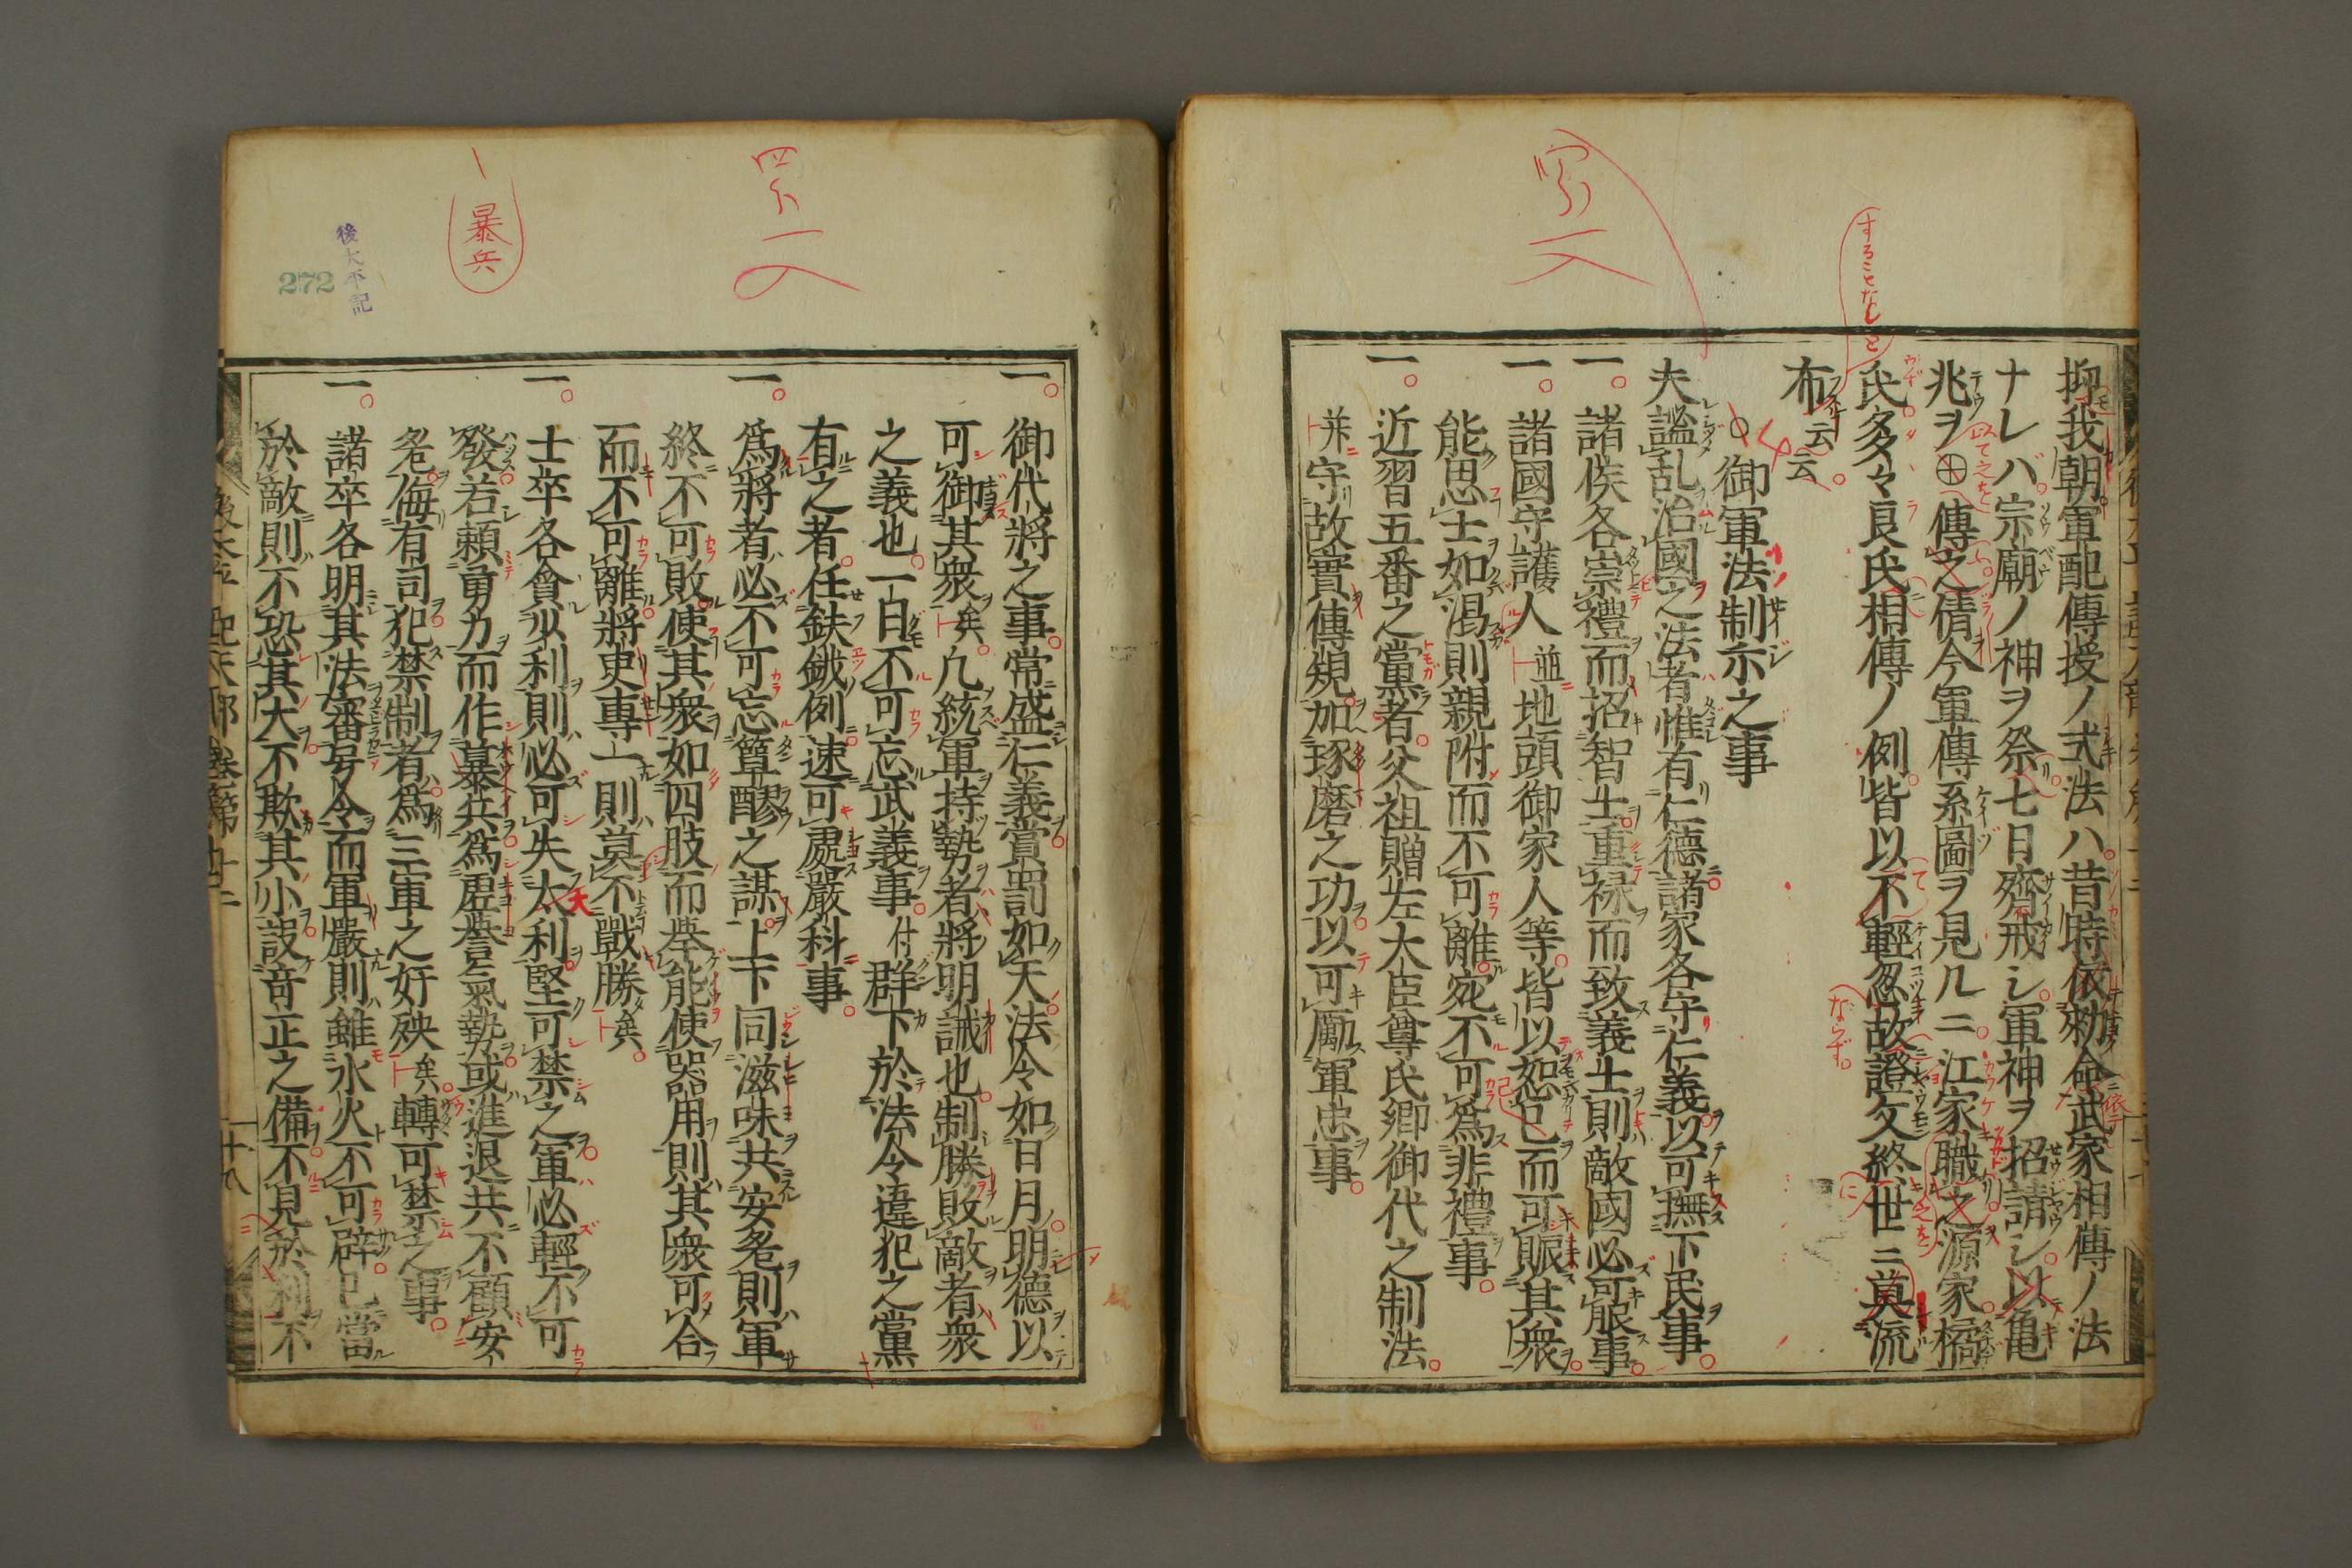 抑我朝軍配傳授ノ式法ハ昔時依勅命武家相傳ノ法
ナレバ宗廟ノ神ヲ祭七日齊戒シ軍神ヲ招請シ以亀
兆ヲ傳之倩今軍傳系圖ヲ見ルニ江家職之源家橘
氏多々良氏相傳ノ例皆以不輕忽故證文終世ニ莫流
布云云
○御軍法制示之事
夫謐乱治國之法者惟有仁德諸家各守仁義以可撫下民事
一諸侯各崇禮而招智士重禄而致義士則敵國必可服事
一諸國守護人並地頭御家人等皆以恕己而可賑其衆
能思士如渇則親附而不可離宛不可爲非禮事
一近習五番之黨者父祖贈左大臣尊氏卿御代之制法
并守故實傳規加琢磨之功以可勵軍忠事
するこをなしと
ならず
一御代將之事常盛仁義賞罰如天法令如日月明德以
可御其衆矣凡統軍持勢者將明誡也制勝敗敵者衆
之義也一日不可忘武義事付群下於法令違犯之黨
有之者任鈇鉞例速可處嚴科事
一爲將者必不可忘簞醪之謀上下同滋味共安危則軍
終不可敗使其衆如四肢而擧能使器用則其衆可合
而不可離將吏專一則莫不戰勝矣
一士卒各貪以利則必可失太利堅可禁之軍必輕不可
發若頼勇力而作暴兵爲虚譽氣勢或進退共不顧安
危侮有司犯禁制者爲三軍之奸殃矣轉可禁之事
一諸卒各明其法審号令而軍嚴則雖水火不可辟已當
於敵則不恐其大不欺其小設竒正之備不見於利不
暴兵
後太平記
272
十八